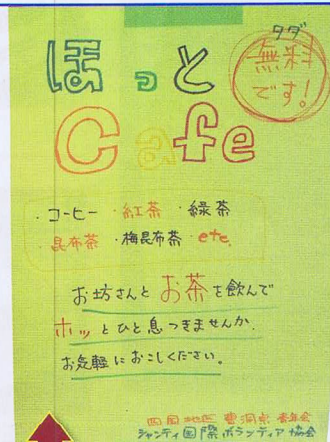 ほっと
Cafe
タダ
無料
です!
・コーヒー ・紅茶 ・緑茶
・昆布茶 ・梅昆布茶 ・etc.
お坊さんと お茶を飲んで
ホッとひと息つきませんか.
お気軽におこしください。
四国地区 曹洞宗 青年会
シャンティ国際ボランティア協会